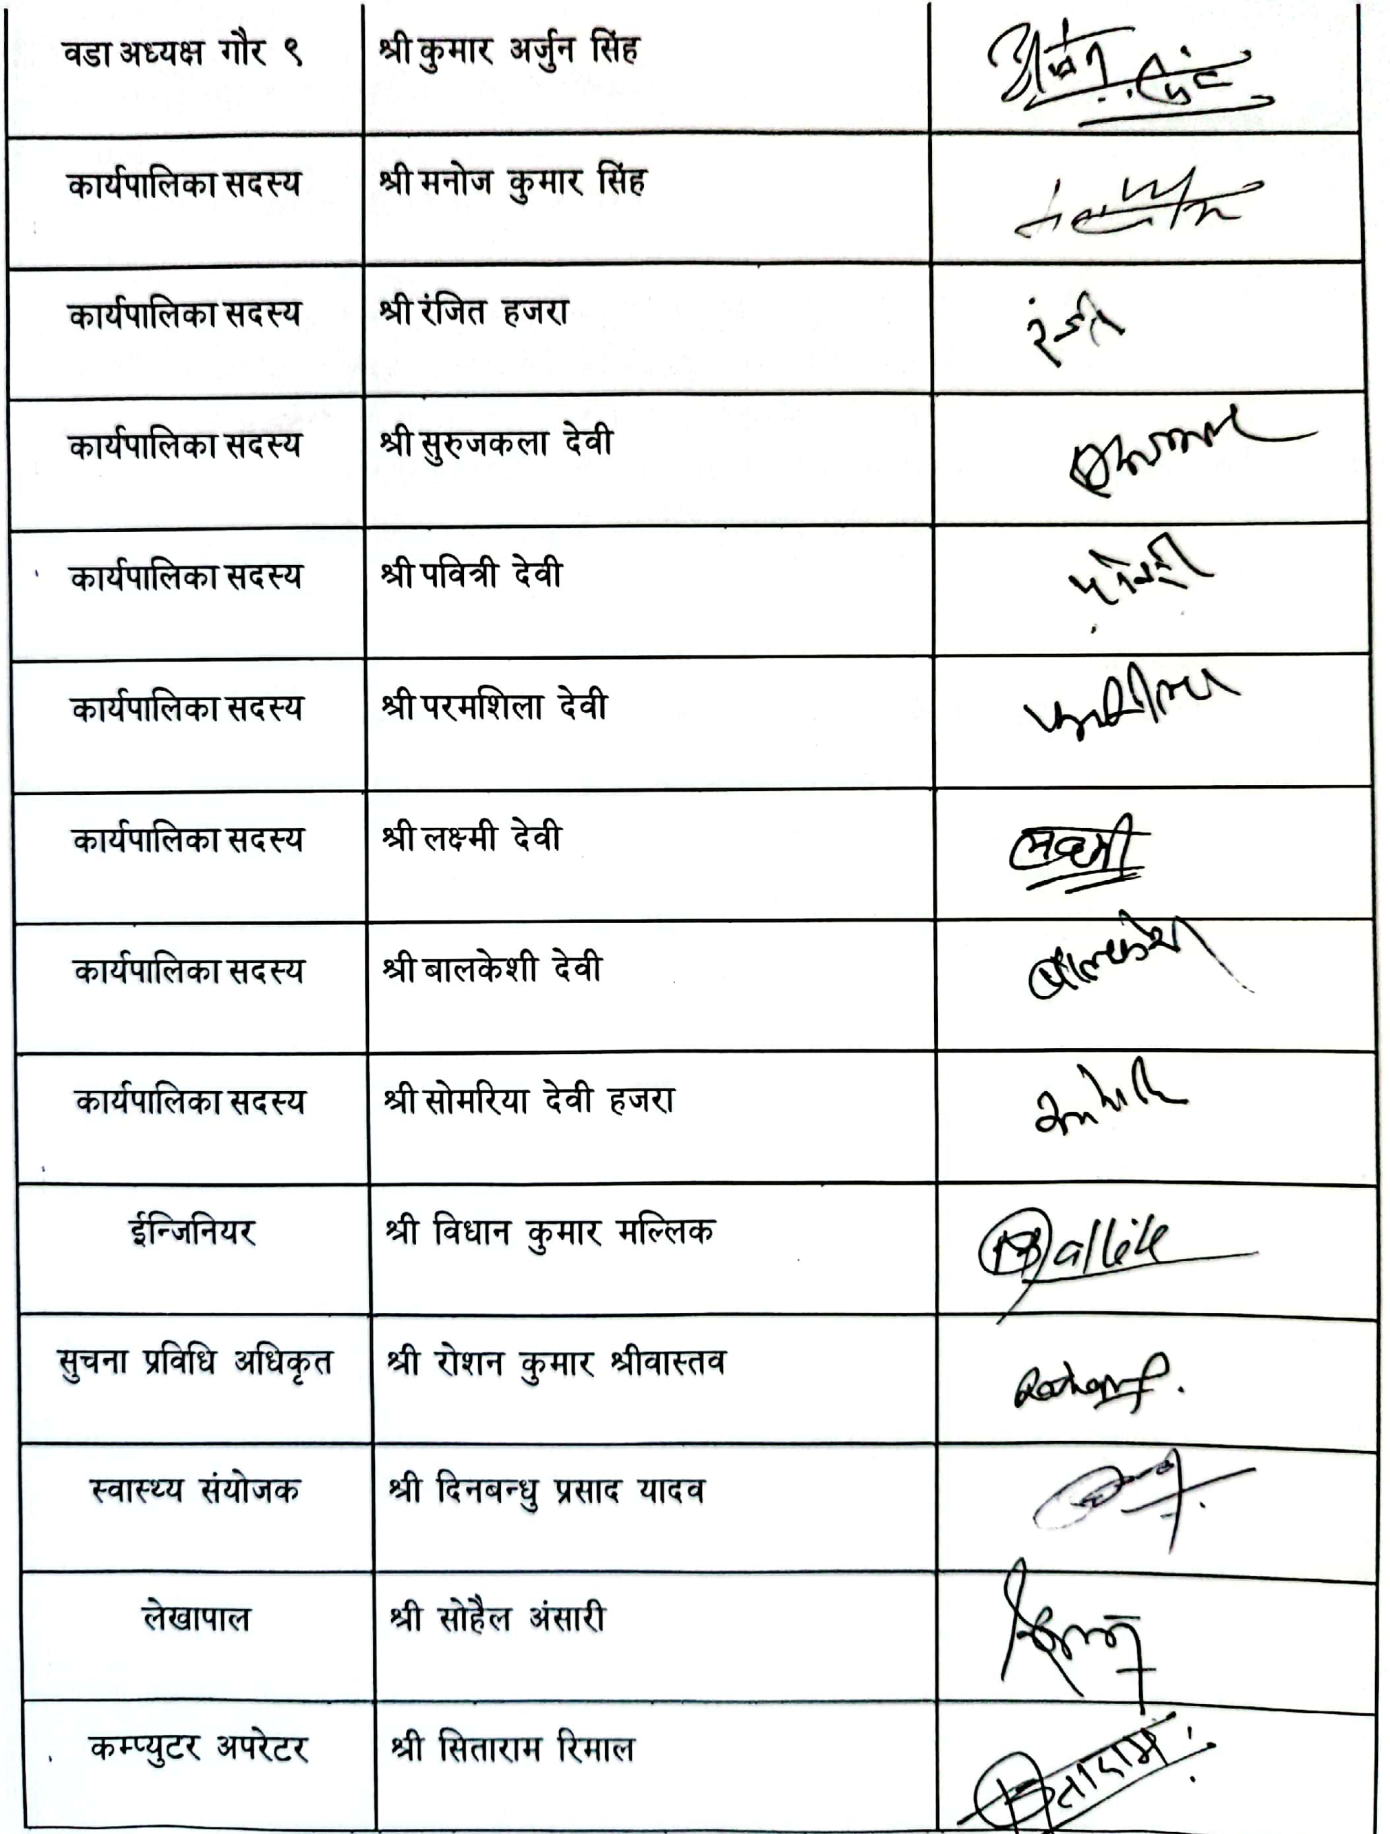 वडा अध्यक्ष गौर ९ श्री कुमार अर्जुन सिंह
कार्यपालिका सदस्य श्री मनोज कुमार सिंह
कार्यपालिका सदस्य श्री रंजित हजरा
कार्यपालिका सदस्य श्री सुरुजकला देवी
कार्यपालिका सदस्य श्री पवित्री देवी
कार्यपालिका सदस्य श्री परमशिला देवी
कार्यपालिका सदस्य श्री लक्ष्मी देवी लक्ष्मी
कार्यपालिका सदस्य श्री बालकेशी देवी
कार्यपालिका सदस्य श्री सोमरिया देवी हजरा
ईन्जिनियर श्री विधान कुमार मल्लिक
सुचना प्रविधि अधिकृत श्री रोशन कुमार श्रीवास्तव
स्वास्थ्य संयोजक श्री दिनबन्धु प्रसाद यादव
लेखापाल श्री सोहैल अंसारी
कम्प्युटर अपरेटर श्री सिताराम रिमाल सिताराम